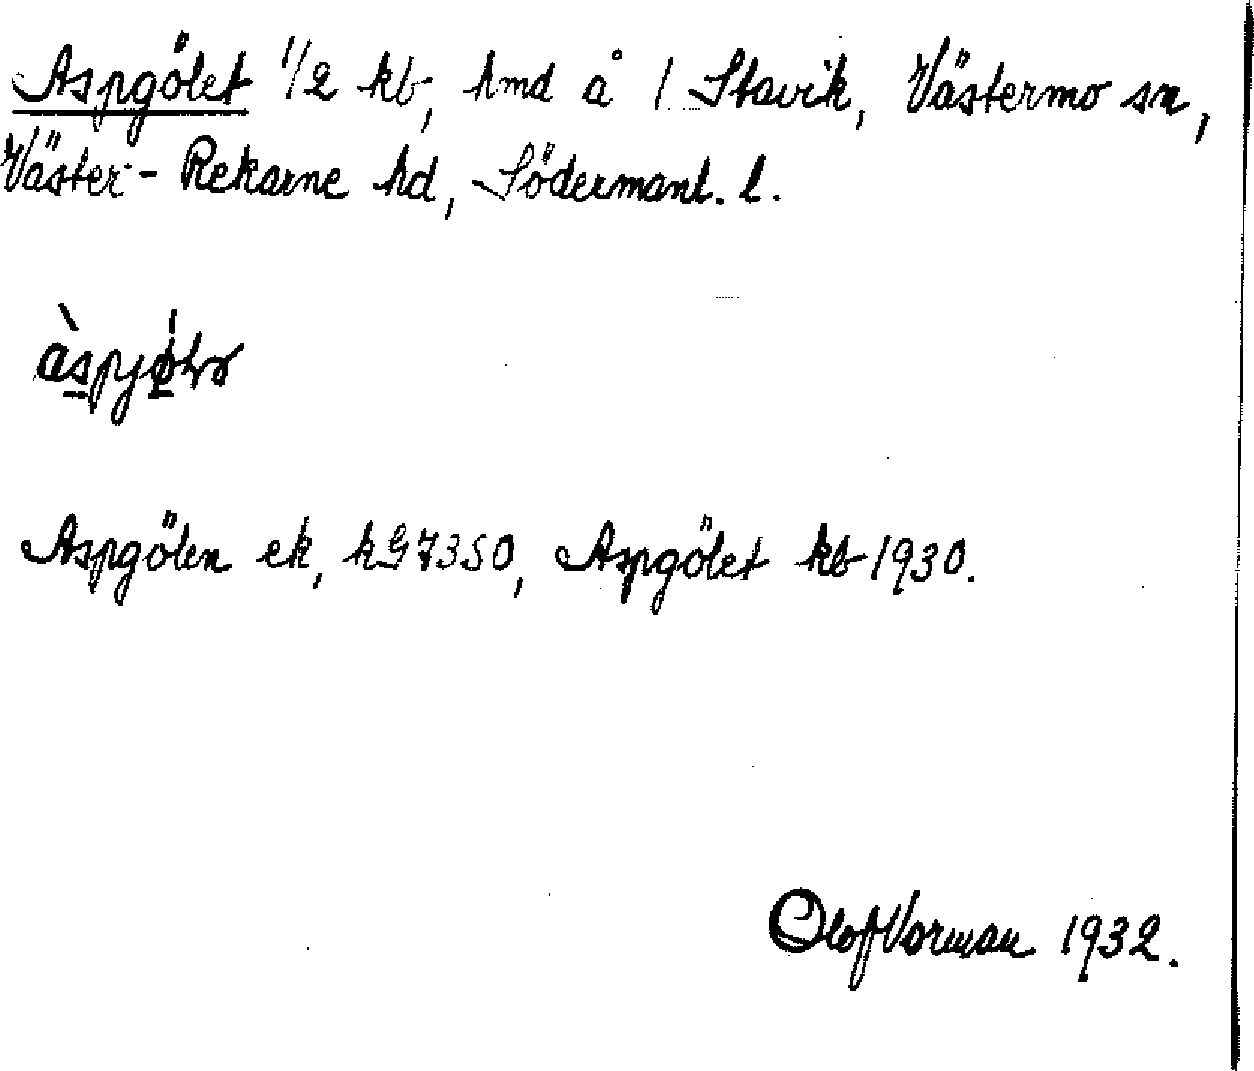 Aspgölet 1/2 kb, hmd å 1 Stavik, Västermo sn,
Väster-Rekarne hd, Södermanl. l.
Aspgölen ek, hG7350, Aspgölet kb 1930.
Olof Vorman 1932.